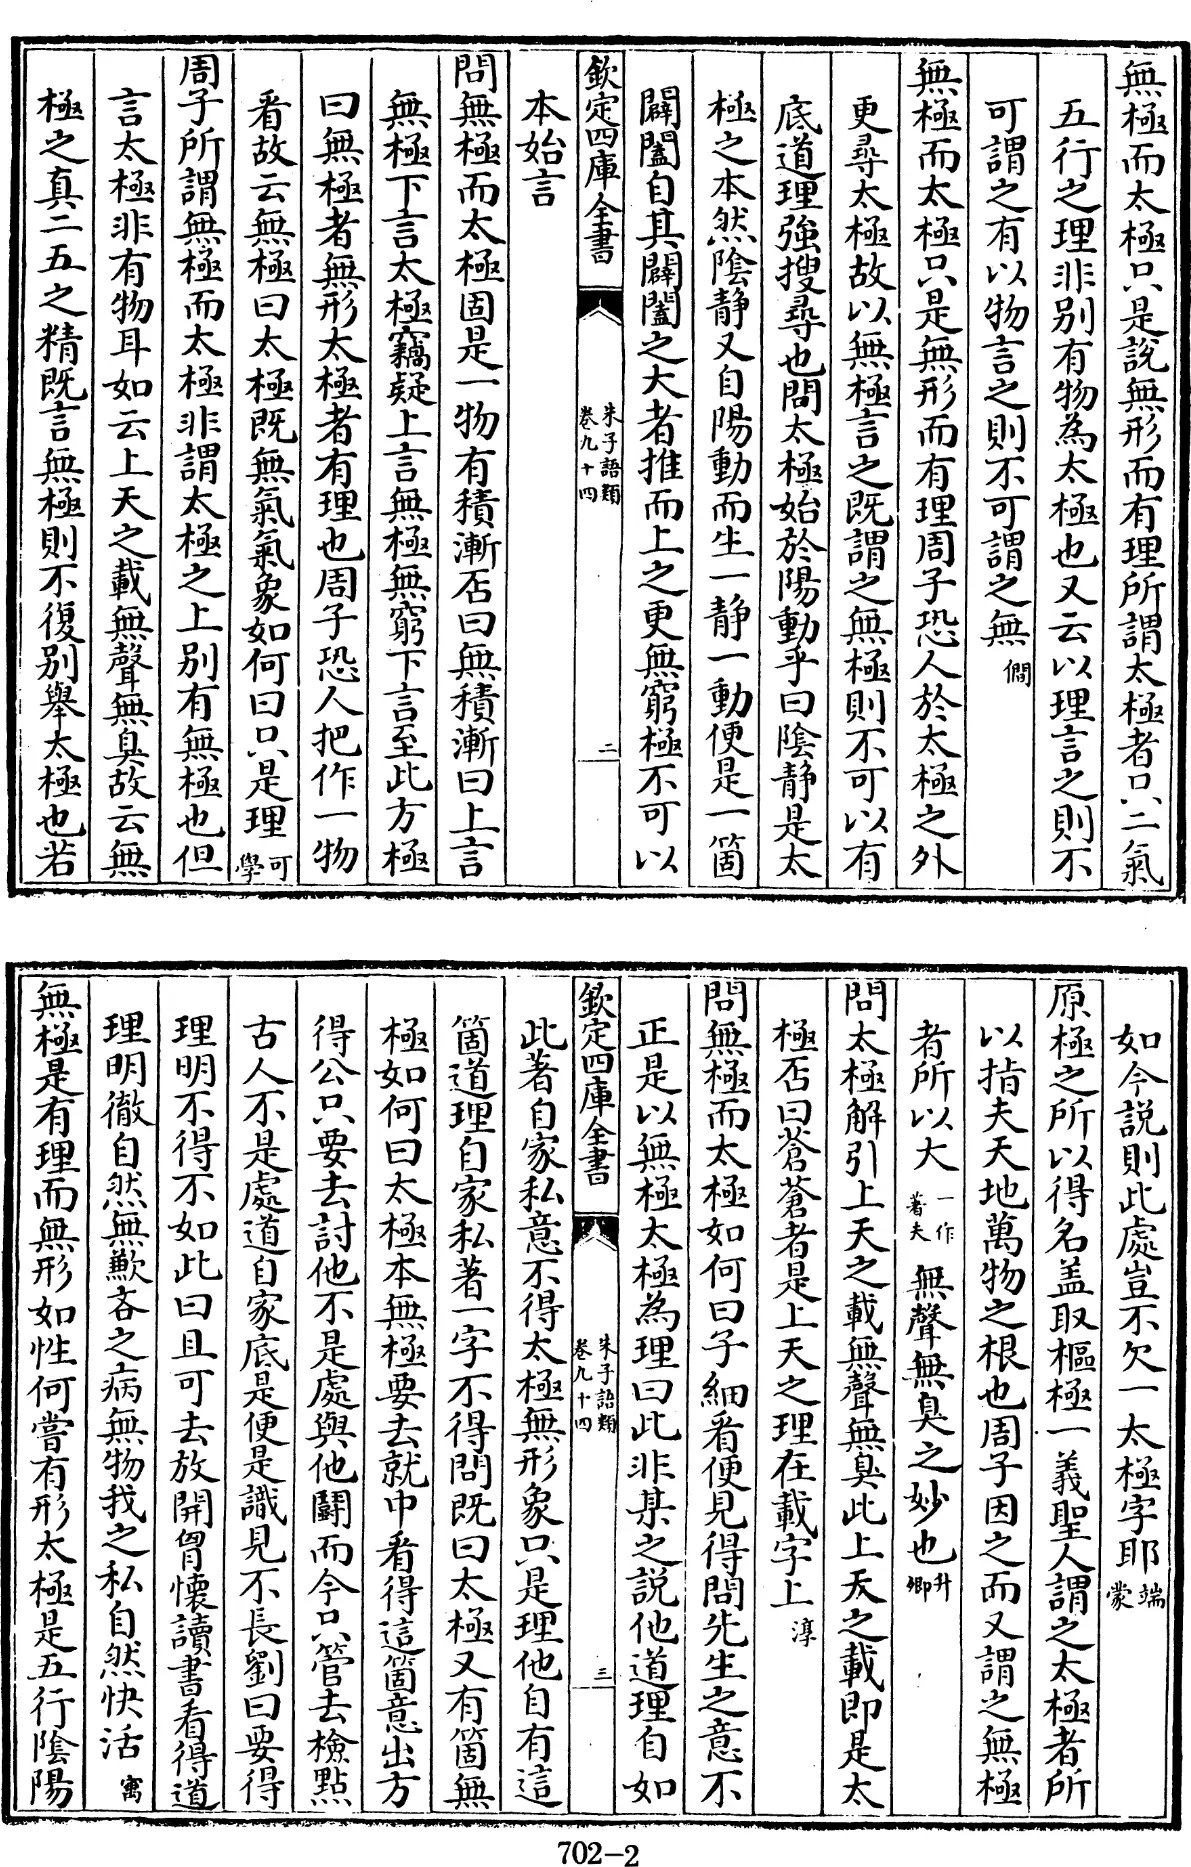 無極而太極只是説無形而有理所謂太極者只二氣
五行之理非別有物為太極也又云以理言之則不
可謂之有以物言之則不可謂之無僴
無極而太極只是無形而有理周子恐人於太極之外
更尋太極故以無極言之既謂之無極則不可以有
底道理強搜尋也問太極始於陽動乎曰陰静是太
極之本然陰静又自陽動而生一静一動便是一箇
闢闔自其闢闔之大者推而上之更無窮極不可以
欽定四庫全書
朱子語類
卷九十四
二
本始言
問無極而太極固是一物有積漸否曰無積漸曰上言
無極下言太極竊疑上言無極無窮下言至此方極
曰無極者無形太極者有理也周子恐人把作一物
看故云無極曰太極既無氣氣象如何曰只是理可學
周子所謂無極而太極非謂太極之上別有無極也但
言太極非有物耳如云上天之載無聲無臭故云無
極之真二五之精既言無極則不復別舉太極也若
如今説則此處豈不欠一太極字耶端蒙
原極之所以得名盖取樞極一義聖人謂之太極者所
以指夫天地萬物之根也周子因之而又謂之無極
者所以大一作著夫無聲無臭之妙也升卿
問太極解引上天之載無聲無臭此上天之載即是太
極否曰蒼蒼者是上天之理在載字上淳
問無極而太極如何曰子細看便見得問先生之意不
正是以無極太極為理曰此非某之説他道理自如
欽定四庫全書
朱子語類
卷九十四
三
此著自家私意不得太極無形象只是理他自有這
箇道理自家私著一字不得問既曰太極又有箇無
極如何曰太極本無極要去就中看得這箇意出方
得公只要去討他不是處與他鬭而今只管去檢點
古人不是處道自家底是便是識見不長劉曰要得
理明不得不如此曰且可去放開胷懷讀書看得道
理明徹自然無歉吝之病無物我之私自然快活㝢
無極是有理而無形如性何嘗有形太極是五行陰陽
702-2